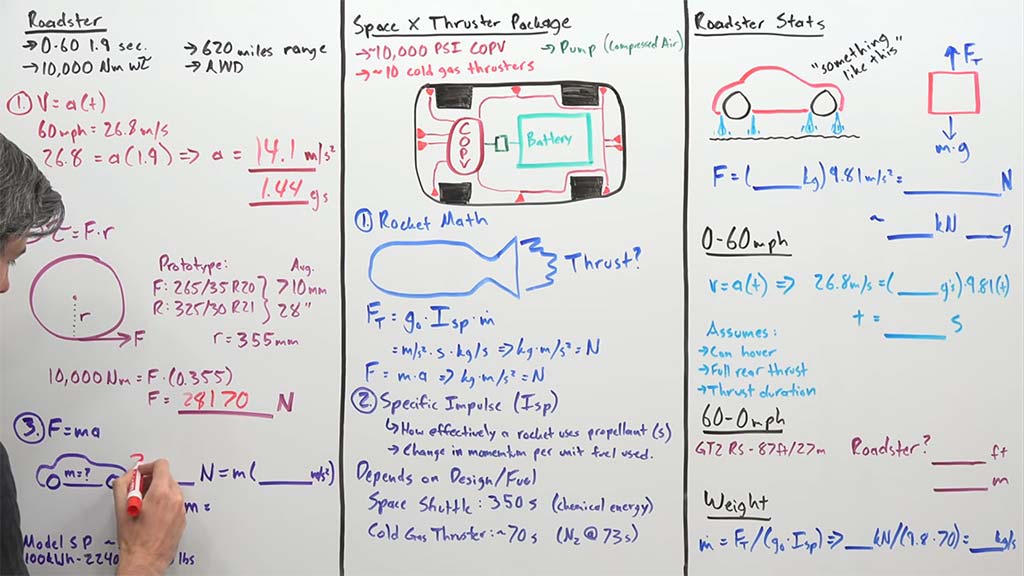 Roadster
→0-60 1.9 sec.
→620 miles range
→10,000 Nm wτ
→AWD
① V = a(t)
60mph = 26.8 m/s
26.8 = a(1.9) => a = 14.1 m/s²
1.44 g's
τ = F·r
Prototype:
Avg.
F: 265/35 R20
>10mm
R: 325/30 R21
28"
r
F
r = 355mm
10,000Nm = F·(0.355)
F = 28170 N
③ F=ma
m=?
N = m( m/s²)
m=
Model S P ~
100kWh-2240 lbs
Space X Thruster Package
→~10,000 PSI COPV
→ Pump (Compressed Air)
→~10 cold gas thrusters
COPV
Battery
① Rocket Math
Thrust?
F_T = g₀·Isp·ṁ
= m/s²·s·kg/s => kg·m/s² = N
F = m·a => kg·m/s² = N
② Specific Impulse (Isp)
↳ How effectively a rocket uses propellant (s)
→ Change in momentum per unit fuel used.
Depends on Design/Fuel
Space Shuttle: 350s (chemical energy)
Cold Gas Thruster: ~70s (N₂ @ 73s)
Roadster Stats
"something like this"
F_T
m·g
F = (____kg) 9.81 m/s² = ____ N
~ ____ kN ____ g
0-60mph
V=a(t) => 26.8m/s = (____g's)·9.81(t)
t = ____ s
Assumes:
→Can hover
→Full rear thrust
→Thrust duration
60-0mph
GT2 RS - 87ft/27m
Roadster? ____ ft
____ m
Weight
ṁ = F_T/(g₀·Isp) => ___kN/(9.8·70) = ___kg/s